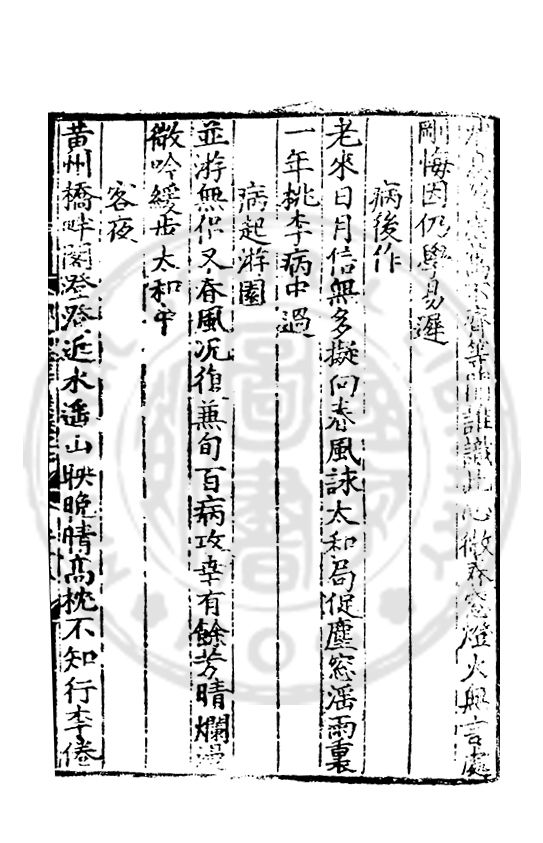 齊等閒誰識此心微春窓燈火無言處
剛悔因仍學易遲
病後作
老來日月信無多擬向春風詠太和局促塵窓滛雨裏
一年桃李病中過
病起游園
並游無侶又春風況復兼旬百病攻幸有餘芳晴爛漫
微吟緩步太和中
客夜
黄州橋畔閣澄近水遥山映晚晴高枕不知行李倦